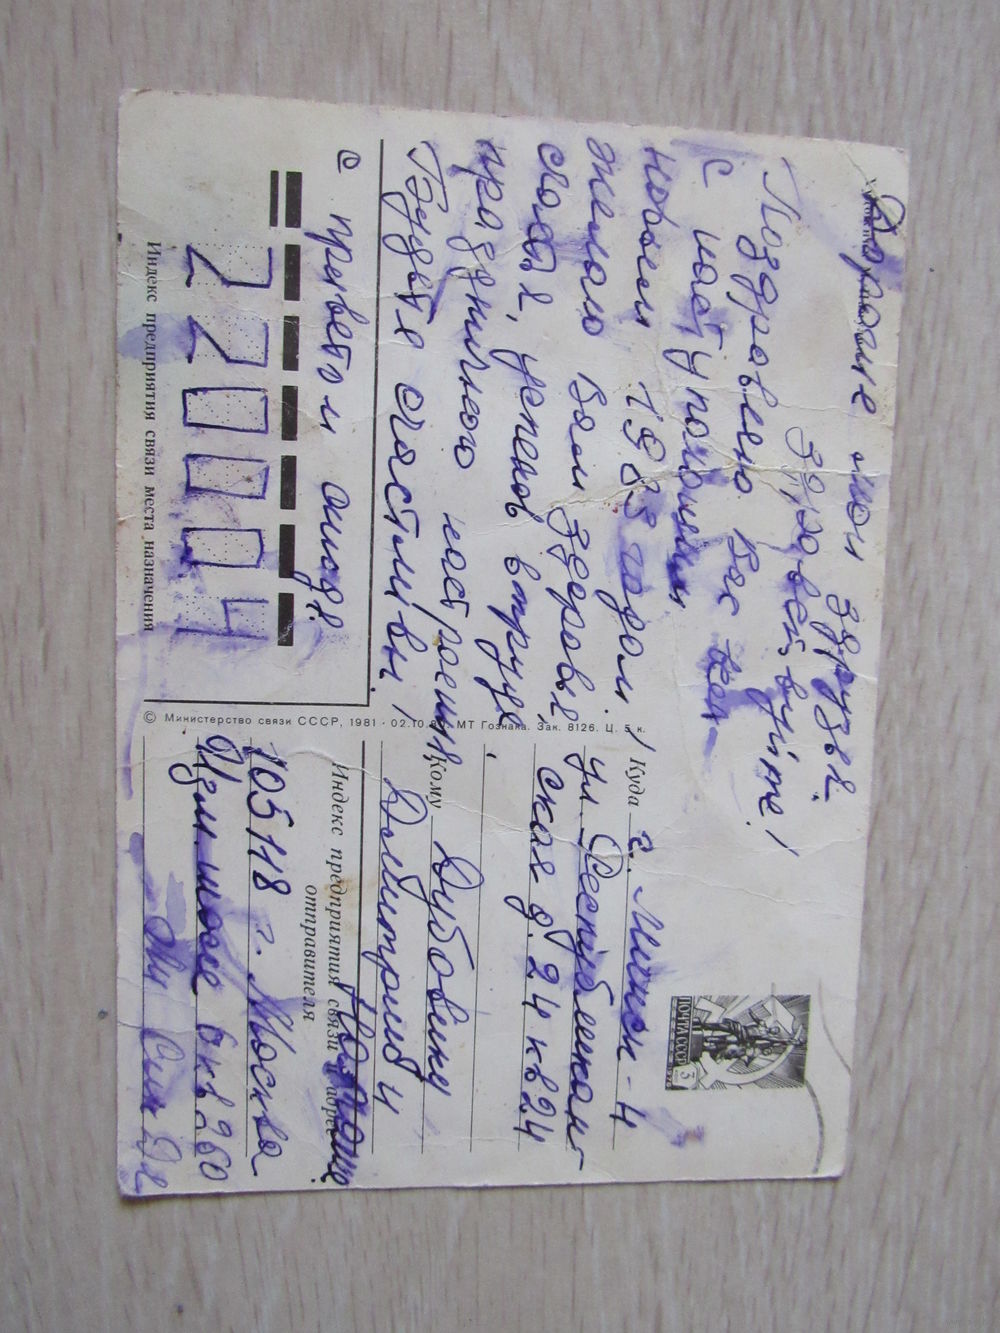 Дорогие мои друзья.
Здровствуйте!
Поздровляю Вас всех
с наступающим
новым 1983 годом!
желаю Вам здоровье,
счастя, успехов в труде,
праздничного настроения.
Будьте счастливы!
с приветом
220004
Индекс предприятия связи места назначения
© Министерство связи СССР, 1981 · 02.10.81. МТ Гознака. Зак. 8126. Ц. 5 к.
ПОЧТА СССР
3
Куда г. Минск-4
ул. Республикан-
ская д. 24 кв 24
Кому Дубовику
Димитрию и
Индекс предприятия связи и
отправителя
105118 г. Москва
Изм. шоссе 6 кв 260